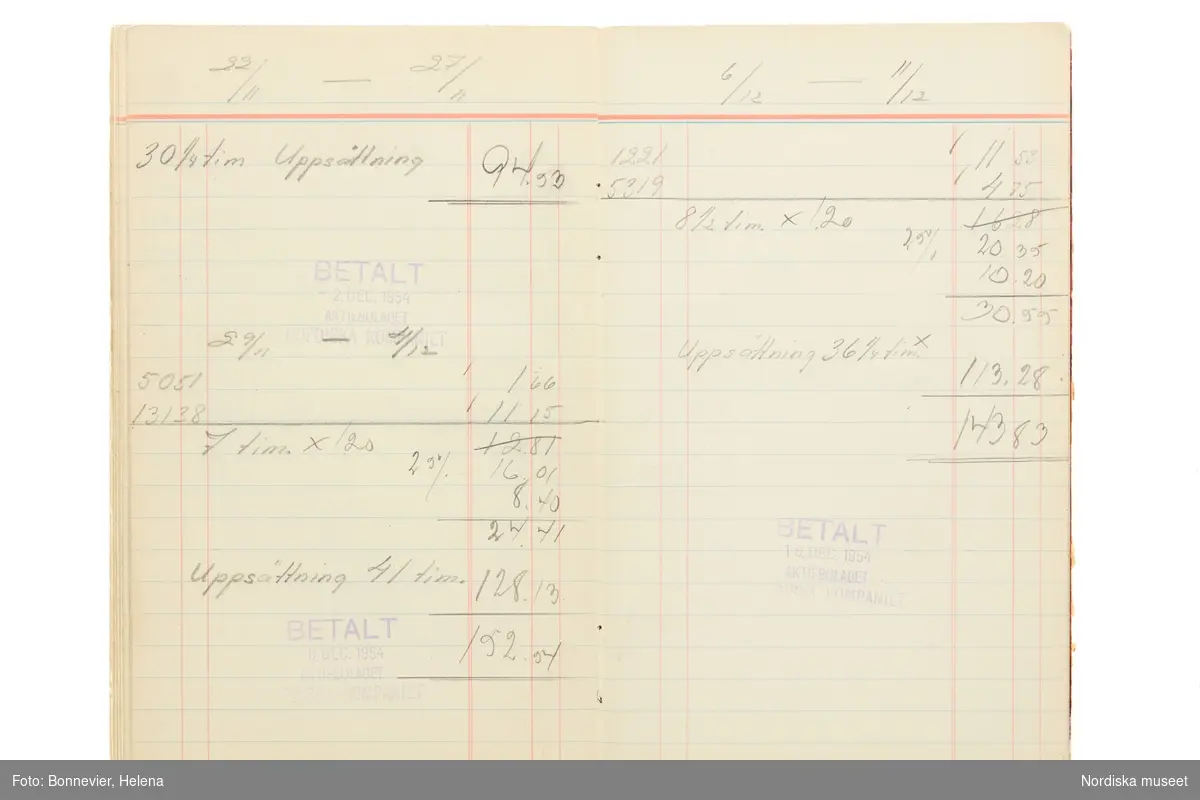 22/11 — 27/11
30 1/4 tim Uppsättning 94.53
BETALT
- 2. DEC. 1954
AKTIEBOLAGET
NORDISKA KOMPANIET
29/11 — 4/12
5051 1 1 66
13138 1 11 15
7 tim. x 1.20 12.81
25%. 16.01
8.40
24.41
Uppsättning 41 tim. 128.13
152.54
BETALT
DEC. 1954
AKTIEBOLAGET
KOMPANIET
6/12 — 11/12
1221 1 11 53
5319 1 4 75
8 1/2 tim. x 1.20 16 28
25% 20 35
10.20
30.55
Uppsättning 36 1/4 tim. x
113.28
143 83
BETALT
DEC. 1954
AKTIEBOLAGET
KOMPANIET
Foto: Bonnevier, Helena
Nordiska museet